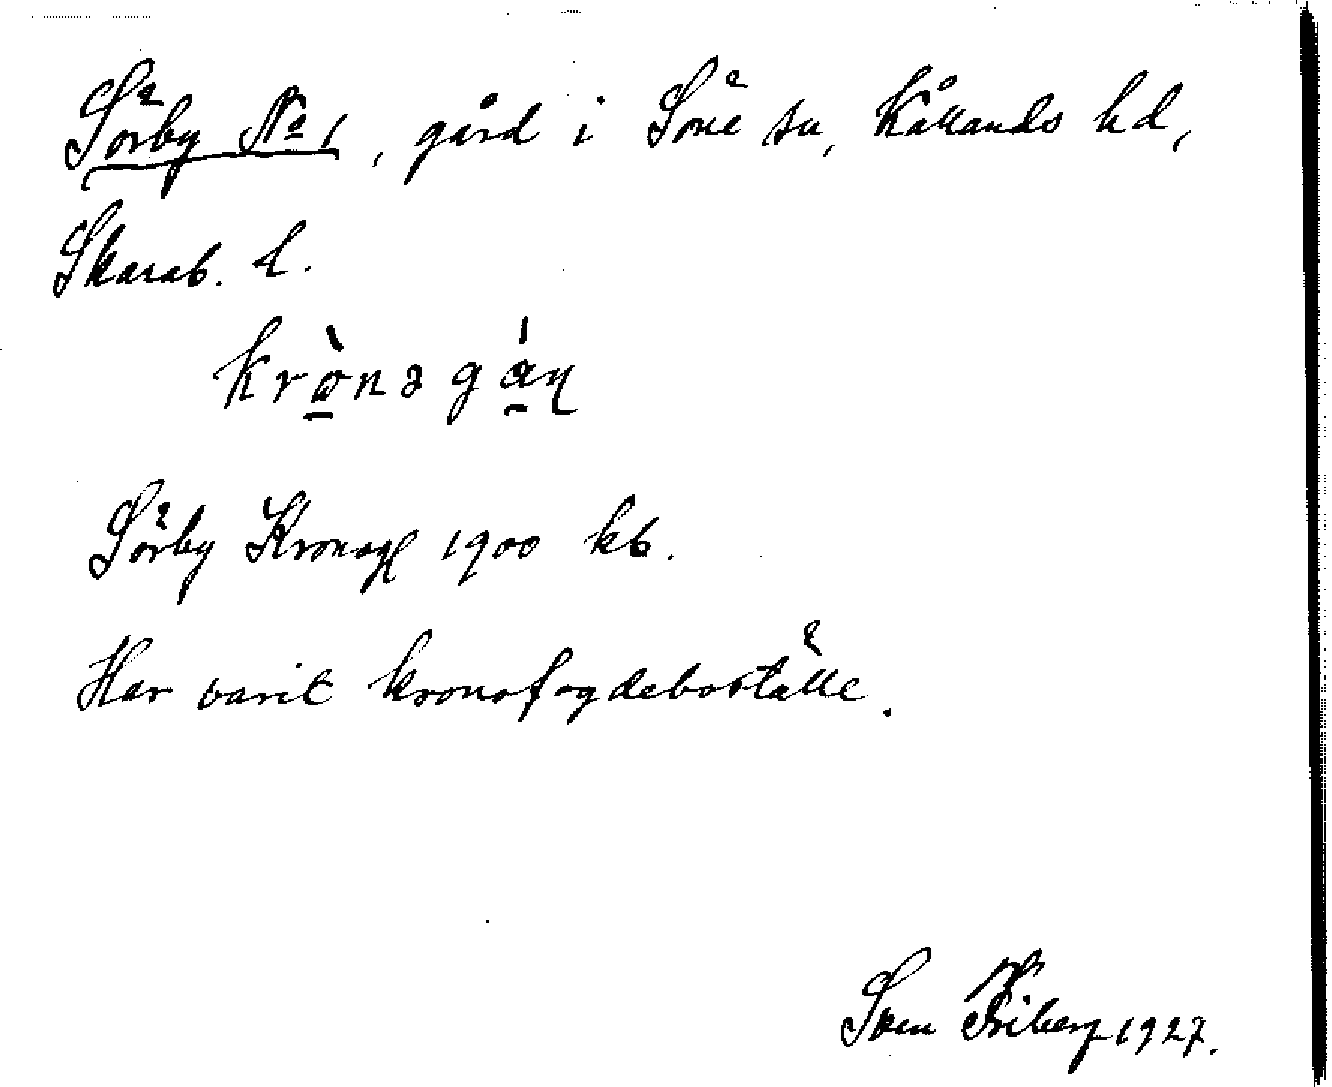 Sörby № 1, gård i Söne sn, Kållands hd,
Skarab. l.
krò̱nəgá̱ɳ
Sörby Kronog 1900 kb.
Har varit kronofogdeboställe.
Sven Friberg 1927.